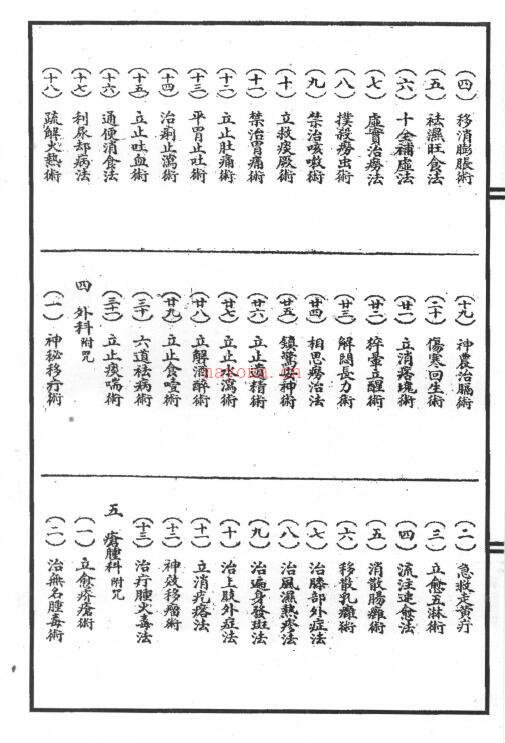 (四) 移消膨脹術
(五) 祛濕旺食法
(六) 十全補虛法
(七) 虛實治癆法
(八) 撲殺癆虫術
(九) 禁治咳嗽術
(十) 立救痰厥術
(十一) 禁治胃痛術
(十二) 立止肚痛術
(十三) 平胃止吐術
(十四) 治痢止瀉術
(十五) 立止吐血術
(十六) 通便消食法
(十七) 利尿却病法
(十八) 疏解火熱術
(十九) 神農治膈術
(二十) 傷寒回生術
(廿一) 立消痞塊術
(廿二) 猝暈立醒術
(廿三) 解悶長力術
(廿四) 相思癆治法
(廿五) 鎮驚神術
(廿六) 立止遺精術
(廿七) 立止水瀉術
(廿八) 立解酒醉術
(廿九) 立止食噎術
(三十) 六道祛病術
(三一) 立止痰喘術
四 外科附咒
(一) 神秘移疔術
(二) 急救走黃疔
(三) 立愈五淋術
(四) 流注速愈法
(五) 消散腸癰術
(六) 移散乳癰術
(七) 治膝部外症法
(八) 治風濕熱疼法
(九) 治遍身發斑法
(十) 治上肢外症法
(十一) 立消疙瘩法
(十二) 神效移瘤術
(十三) 治疔腫火毒法
五 瘡腫科附咒
(一) 立愈疥瘡術
(二) 治無名腫毒術